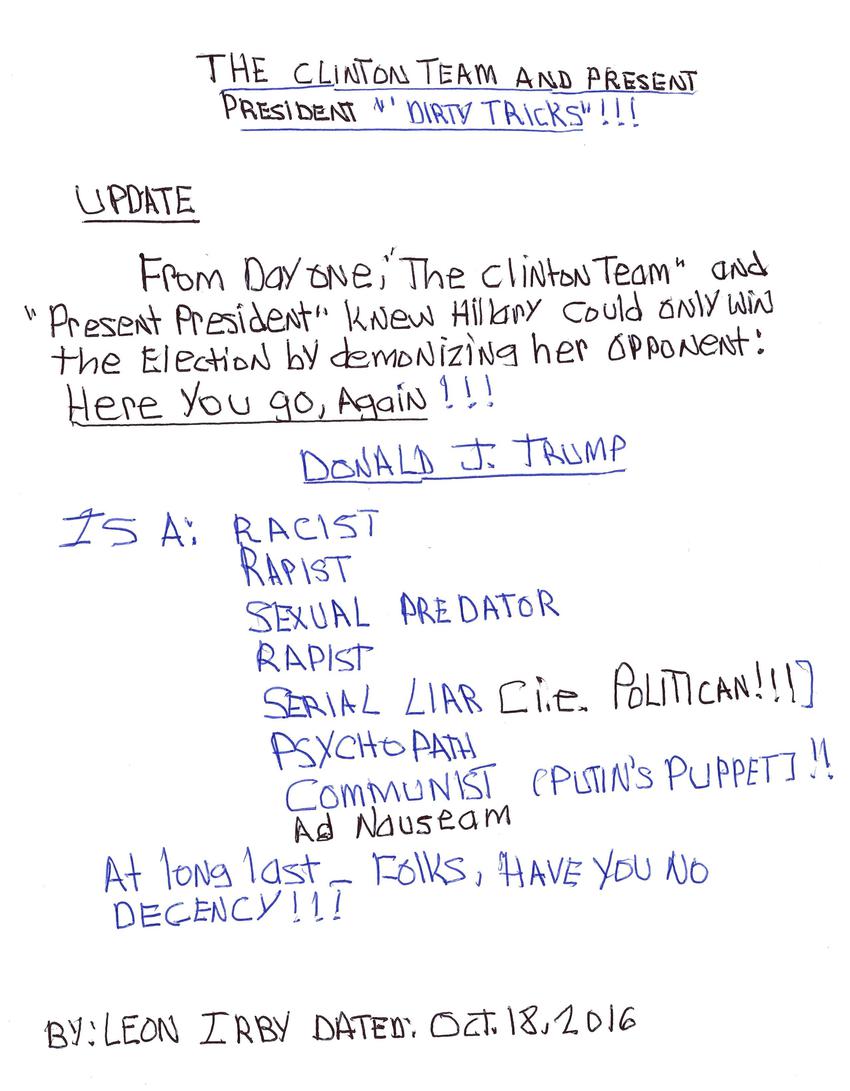 THE CLINTON TEAM AND PRESENT
PRESIDENT "' DIRTY TRICKS"!!!
UPDATE
From Day one; "The Clinton Team" and
"Present President" knew Hillary Could only win
the Election by demonizing her opponent:
Here You go, Again!!!
DONALD J. TRUMP
IS A: RACIST
RAPIST
SEXUAL PREDATOR
RAPIST
SERIAL LIAR [i.e. POLITICAN!!!]
PSYCHOPATH
COMMUNIST (PUTIN'S PUPPET]!!
Ad Nauseam
At long last_ Folks, HAVE YOU NO
DECENCY!!!
BY: LEON IRBY DATED: Oct. 18, 2016